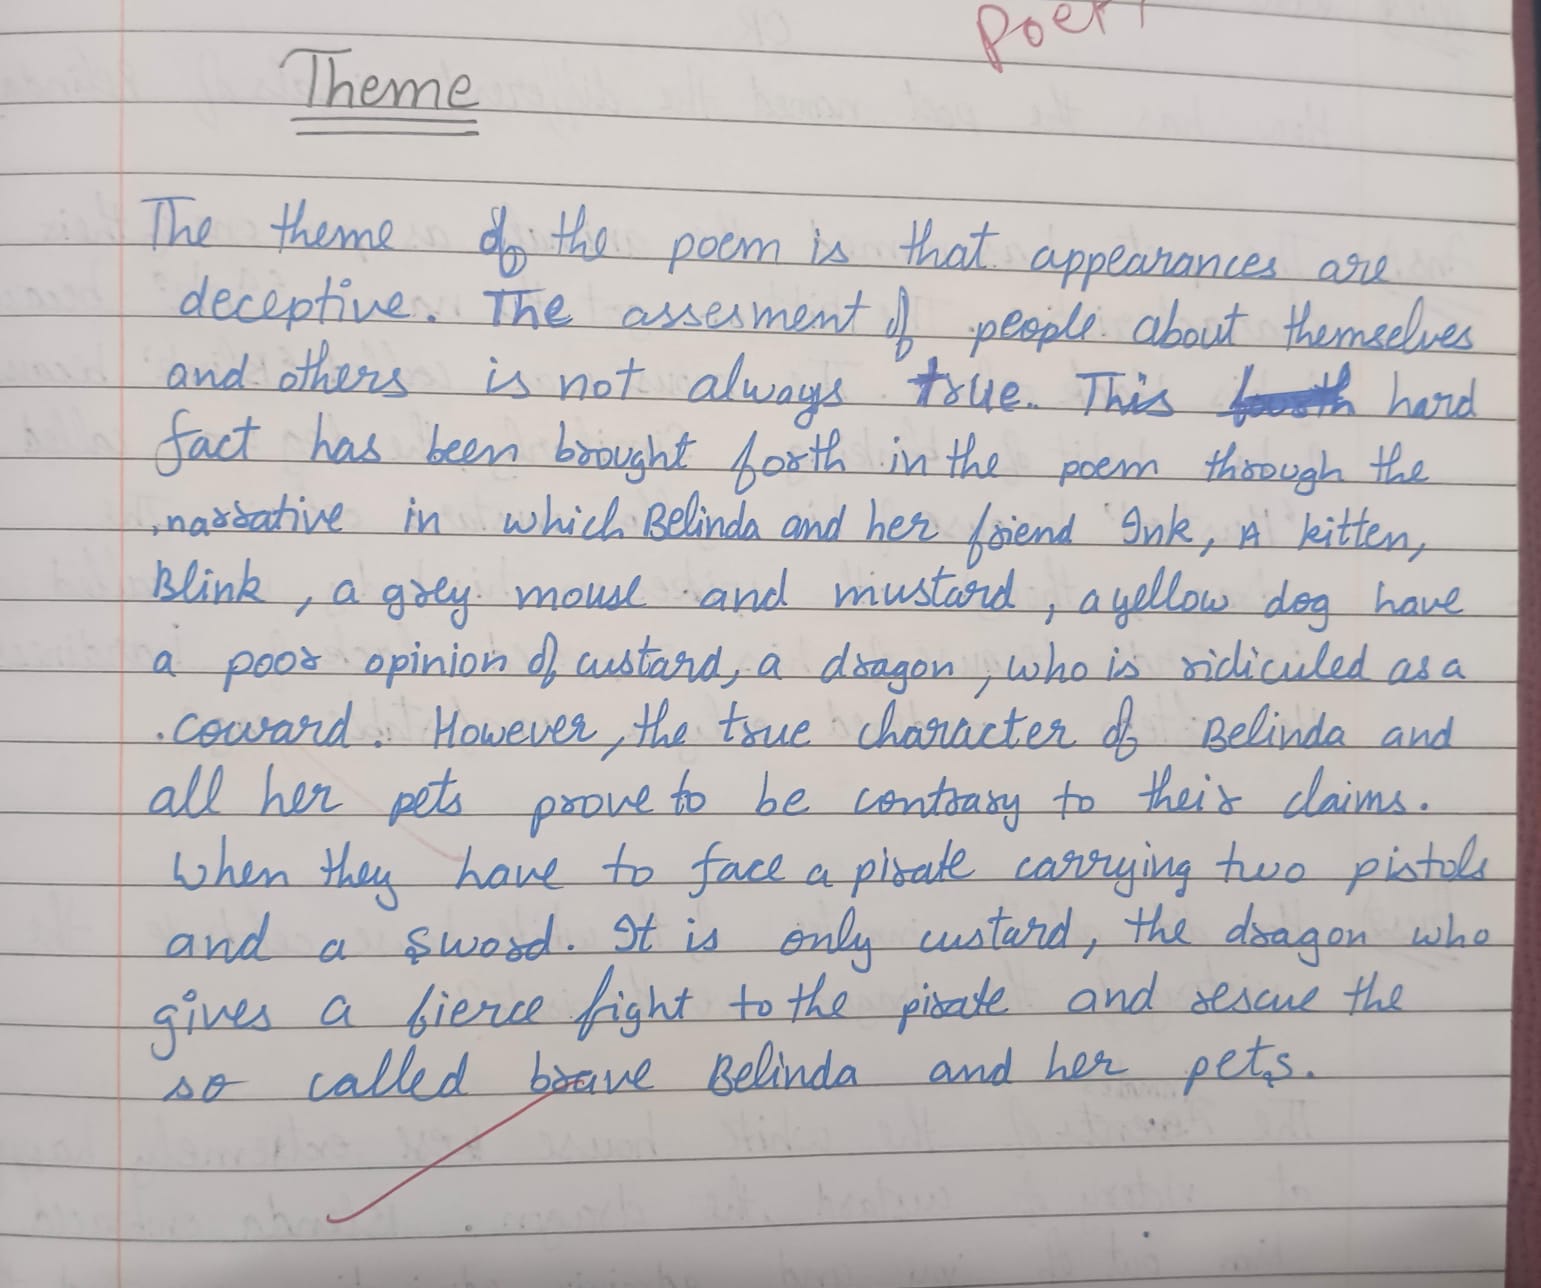 Poem
Theme
The theme of the poem is that appearances are
deceptive. The assesment of people about themselves
and others is not always true. This hard
fact has been brought forth in the poem through the
narrative in which Belinda and her friend Ink, A kitten,
Blink, a grey mouse and mustard, a yellow dog have
a poor opinion of custard, a dragon, who is ridiculed as a
coward. However, the true character of Belinda and
all her pets prove to be contrary to their claims.
When they have to face a pirate carrying two pistols
and a sword. It is only custard, the dragon who
gives a fierce fight to the pirate and rescue the
so called brave Belinda and her pets.